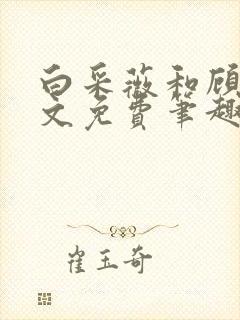 白采薇和顾
文免费笔趣
崔玉奇